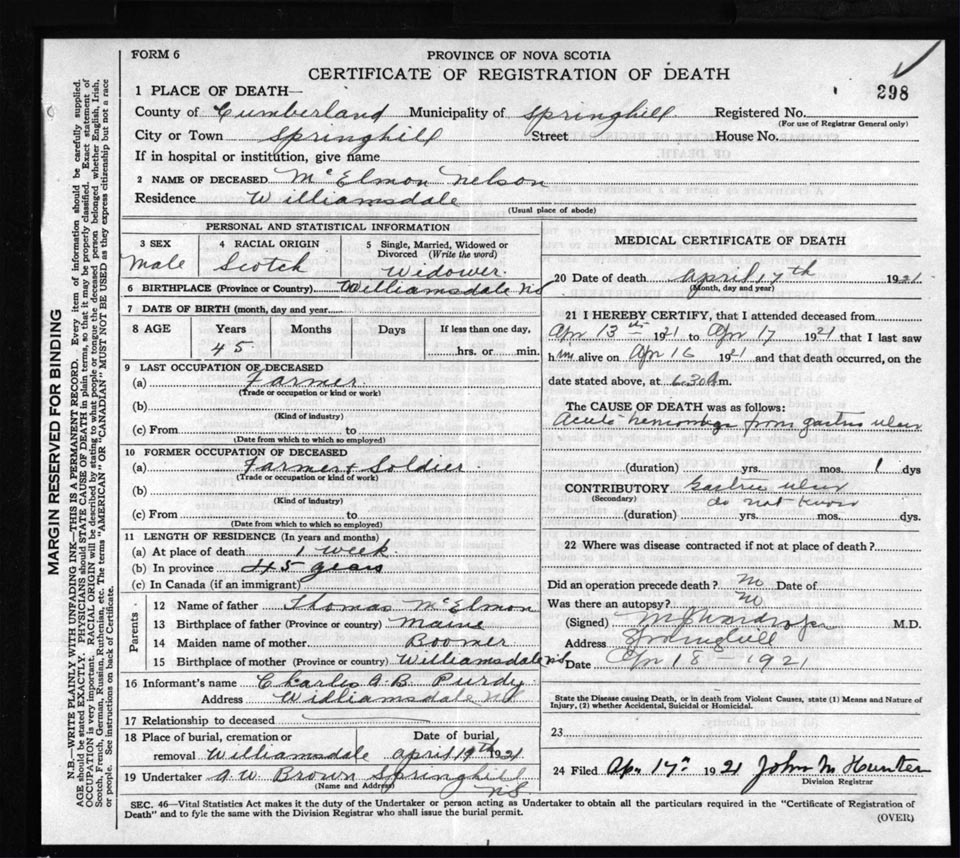 FORM 6
PROVINCE OF NOVA SCOTIA
CERTIFICATE OF REGISTRATION OF DEATH
298
1 PLACE OF DEATH—
County of Cumberland Municipality of Springhill Registered No.
(For use of Registrar General only)
City or Town Springhill Street House No.
If in hospital or institution, give name
2 NAME OF DECEASED McElmon Nelson
Residence Williamsdale
(Usual place of abode)
PERSONAL AND STATISTICAL INFORMATION
3 SEX 4 RACIAL ORIGIN 5 Single, Married, Widowed or Divorced (Write the word)
Male Scotch Widower
6 BIRTHPLACE (Province or Country) Williamsdale NS
7 DATE OF BIRTH (month, day and year)
8 AGE Years Months Days If less than one day,
45 hrs. or min.
9 LAST OCCUPATION OF DECEASED
(a) Farmer
(Trade or occupation or kind or work)
(b)
(Kind of industry)
(c) From to
(Date from which to which so employed)
10 FORMER OCCUPATION OF DECEASED
(a) Farmer & Soldier
(Trade or occupation or kind of work)
(b)
(Kind of industry)
(c) From to
(Date from which to which so employed)
11 LENGTH OF RESIDENCE (In years and months)
(a) At place of death 1 week
(b) In province 45 years
(c) In Canada (if an immigrant)
Parents
12 Name of father Thomas McElmon
13 Birthplace of father (Province or country) Maine
14 Maiden name of mother Boomer
15 Birthplace of mother (Province or country) Williamsdale NS
16 Informant's name Charles A B Purdy
Address Williamsdale NS
17 Relationship to deceased
18 Place of burial, cremation or Date of burial
removal Williamsdale April 19th 1921
19 Undertaker A.W. Brown Springhill
(Name and Address) NS
MEDICAL CERTIFICATE OF DEATH
20 Date of death April 17th 1921
(Month, day and year)
21 I HEREBY CERTIFY, that I attended deceased from
Apr 13th 1921 to Apr 17 1921 that I last saw
him alive on Apr 16 1921 and that death occurred, on the
date stated above, at 6.30 A m.
The CAUSE OF DEATH was as follows:
Acute hemorrhage from gastric ulcer
(duration) yrs. mos. 1 dys
CONTRIBUTORY Gastric ulcer
(Secondary) do not know
(duration) yrs. mos. dys.
22 Where was disease contracted if not at place of death?
Did an operation precede death? no Date of
Was there an autopsy? no
(Signed) M.D.
Address Springhill
Date Apr 18 - 1921
State the Disease causing Death, or in death from Violent Causes, state (1) Means and Nature of
Injury, (2) whether Accidental, Suicidal or Homicidal.
23
24 Filed Apr. 17th 1921 John M Hunter
Division Registrar
SEC. 46—Vital Statistics Act makes it the duty of the Undertaker or person acting as Undertaker to obtain all the particulars required in the "Certificate of Registration of
Death" and to fyle the same with the Division Registrar who shall issue the burial permit.
(OVER)
MARGIN RESERVED FOR BINDING
N.B.—WRITE PLAINLY WITH UNFADING INK—THIS IS A PERMANENT RECORD. Every item of information should be carefully supplied.
AGE should be stated EXACTLY. PHYSICIANS should STATE CAUSE OF DEATH in plain terms, so that it may be properly classified. Exact statement of
OCCUPATION is very important. RACIAL ORIGIN will be described by stating to what people or tongue the deceased person belonged whether English, Irish,
Scotch, French, German, Russian, Ruthenian, etc. The terms "AMERICAN" OR "CANADIAN" MUST NOT BE USED as they express citizenship but not a race
or people. See instructions on back of Certificate.